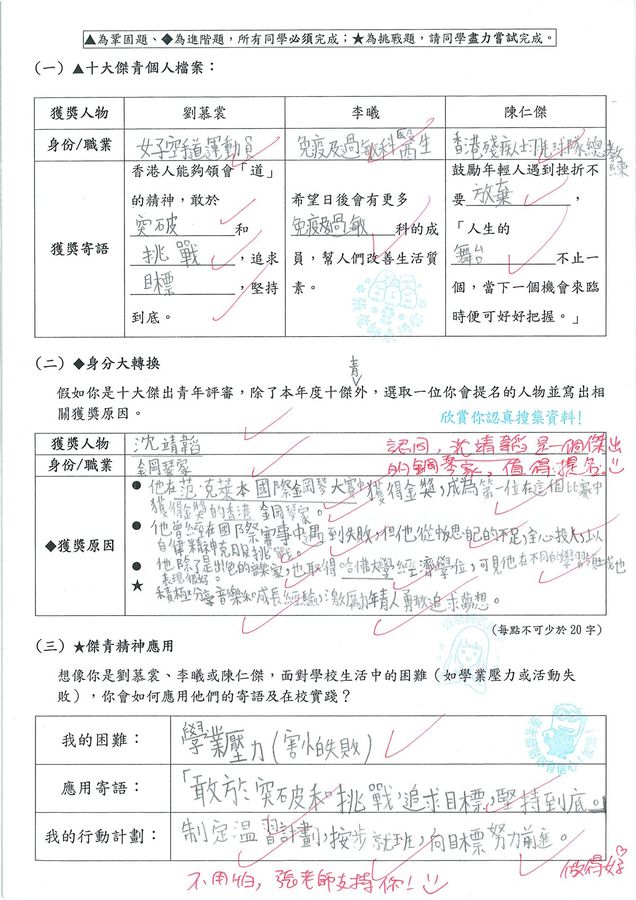 ▲為鞏固題、◆為進階題，所有同學必須完成；★為挑戰題，請同學盡力嘗試完成。
(一) ▲十大傑青個人檔案：
獲獎人物 劉慕裳 李曦 陳仁傑
身份/職業 女子空手道運動員 免疫及過敏科醫生 香港殘疾人士乒乓球隊總教練
獲獎寄語
香港人能夠領會「道」
的精神，敢於
突破和
挑戰，追求
目標，堅持
到底。
希望日後會有更多
免疫及過敏科的成
員，幫人們改善生活質
素。
鼓勵年輕人遇到挫折不
要放棄，
「人生的
舞台不止一
個，當下一個機會來臨
時便可好好把握。」
(二) ◆身分大轉換
假如你是十大傑出青年評審，除了本年度十傑青外，選取一位你會提名的人物並寫出相
關獲獎原因。
欣賞你認真搜集資料！
獲獎人物 沈靖韜
身份/職業 鋼琴家
認同，沈靖韜是一個傑出
的鋼琴家，值得提名。
◆獲獎原因
● 他在范·克萊本國際鋼琴大賽中獲得金獎，成為第一位在這個比賽中
獲得金獎的香港鋼琴家。
● 他曾經在國際賽事中遇到失敗，但他從中
自律精神克服挑戰。
● 他除了是出色的音樂家，也取得哈佛大學經濟學位，可見他在不同的學習領域也
表現很好。
★ 積極分享音樂和成長經驗，激勵年青人勇敢追求夢想。
(每點不可少於 20 字)
(三) ★傑青精神應用
想像你是劉慕裳、李曦或陳仁傑，面對學校生活中的困難（如學業壓力或活動失
敗），你會如何應用他們的寄語及在校實踐？
我的困難： 學業壓力(害怕失敗)
應用寄語： 「敢於突破和挑戰，追求目標，堅持到底。」
我的行動計劃： 制定溫習計劃，按步就班，向目標努力前進。
不用怕，張老師支持你！
做得好